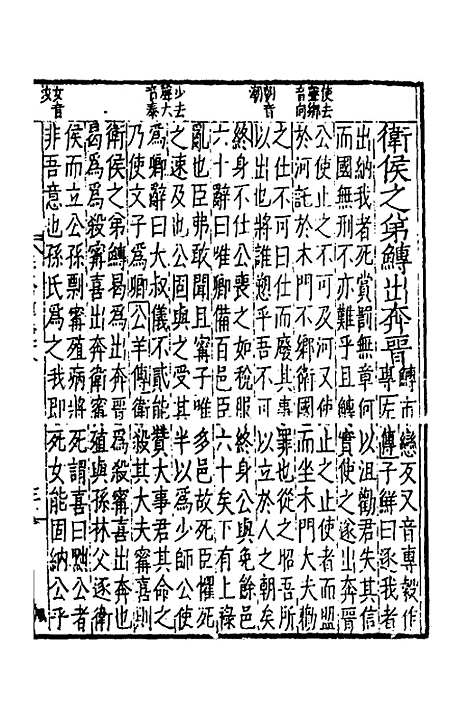 使去
聲鄉
音向
朝音
潮
少去
聲大
音泰
女音
汝
衛侯之弟鱄出奔晉
鱄市戀反又音專穀作
專左傳子鮮曰逐我者
出納我者死賞罰無章何以沮勸君失其信
而國無刑不亦難乎且鱄實使之遂出奔晉
公使止之不可及河又使止之止使者而盟
於河託於木門不鄉衛國而坐木門大夫勸
之仕不可曰仕而廢其事罪也從之昭吾所
以出也將誰愬乎吾不可以立於人之朝矣
終身不仕公喪之如稅服終身公與免餘邑
六十辭曰唯卿備百邑臣六十矣下有上祿
亂也臣弗敢聞且甯子唯多邑故死臣懼死
之速及也公固與之受其半以為少師公使
為卿辭曰大叔儀不貳能贊大事君其命之
乃使文子為卿公羊傳衛殺其大夫甯喜則
衛侯之弟鱄曷為出奔晉為殺甯喜出奔也
曷為為殺甯喜出奔衛甯殖與孫林父逐衛
侯而立公孫剽甯殖病將死謂喜曰黜公者
非吾意也孫氏為之我即死女能固納公乎